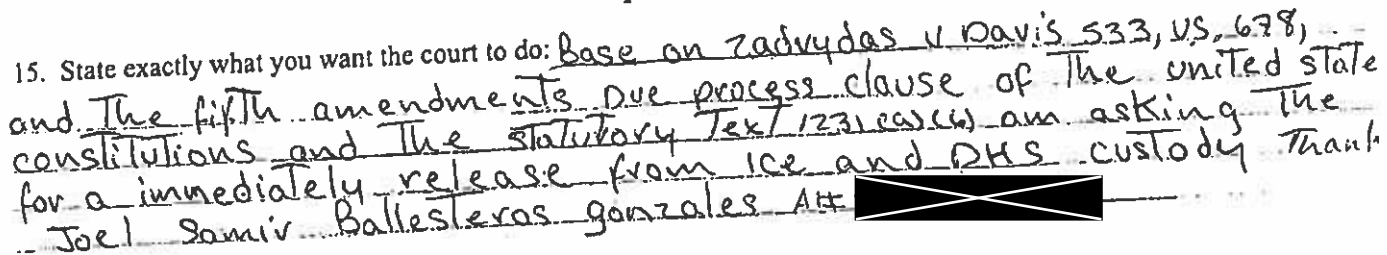 15. State exactly what you want the court to do: Base on Zadvydas v Davis 533, US, 678,
and The fifth amendments Due process clause of The united state
constitutions and The statutory Text 1231(a)(6) am asking The
for a immediately release from ICE and DHS custody Thank
Joel Samir Ballesteros gonzales A#